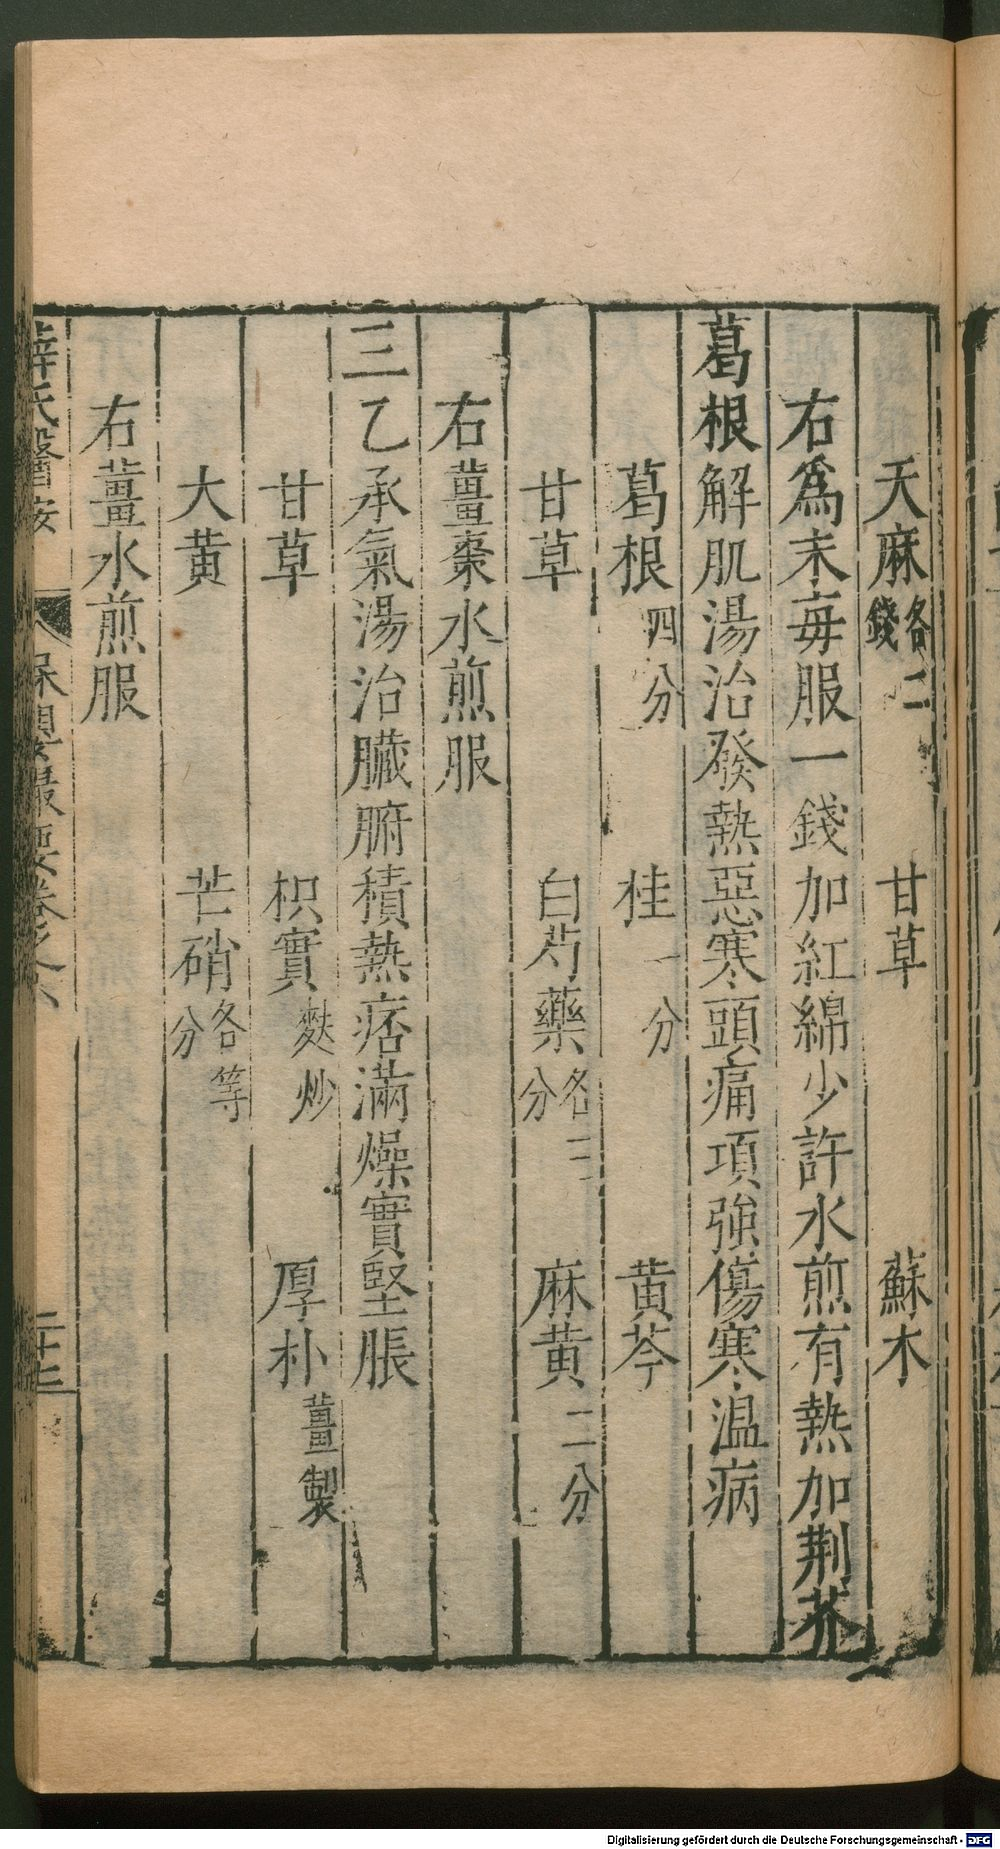 天麻各二錢　甘草　蘇木
右爲末每服一錢加紅綿少許水煎有熱加荆芥
葛根解肌湯治發熱惡寒頭痛項強傷寒温病
葛根四分　桂一分　黄芩
甘草　白芍藥各二分　麻黄二分
右薑棗水煎服
三乙承氣湯治臟腑積熱痞滿燥實堅脹
甘草　枳實麩炒　厚朴薑製
大黄　芒硝各等分
右薑水煎服
薛氏醫按　保嬰撮要卷之八　二十三
Digitalisierung gefördert durch die Deutsche Forschungsgemeinschaft - DFG